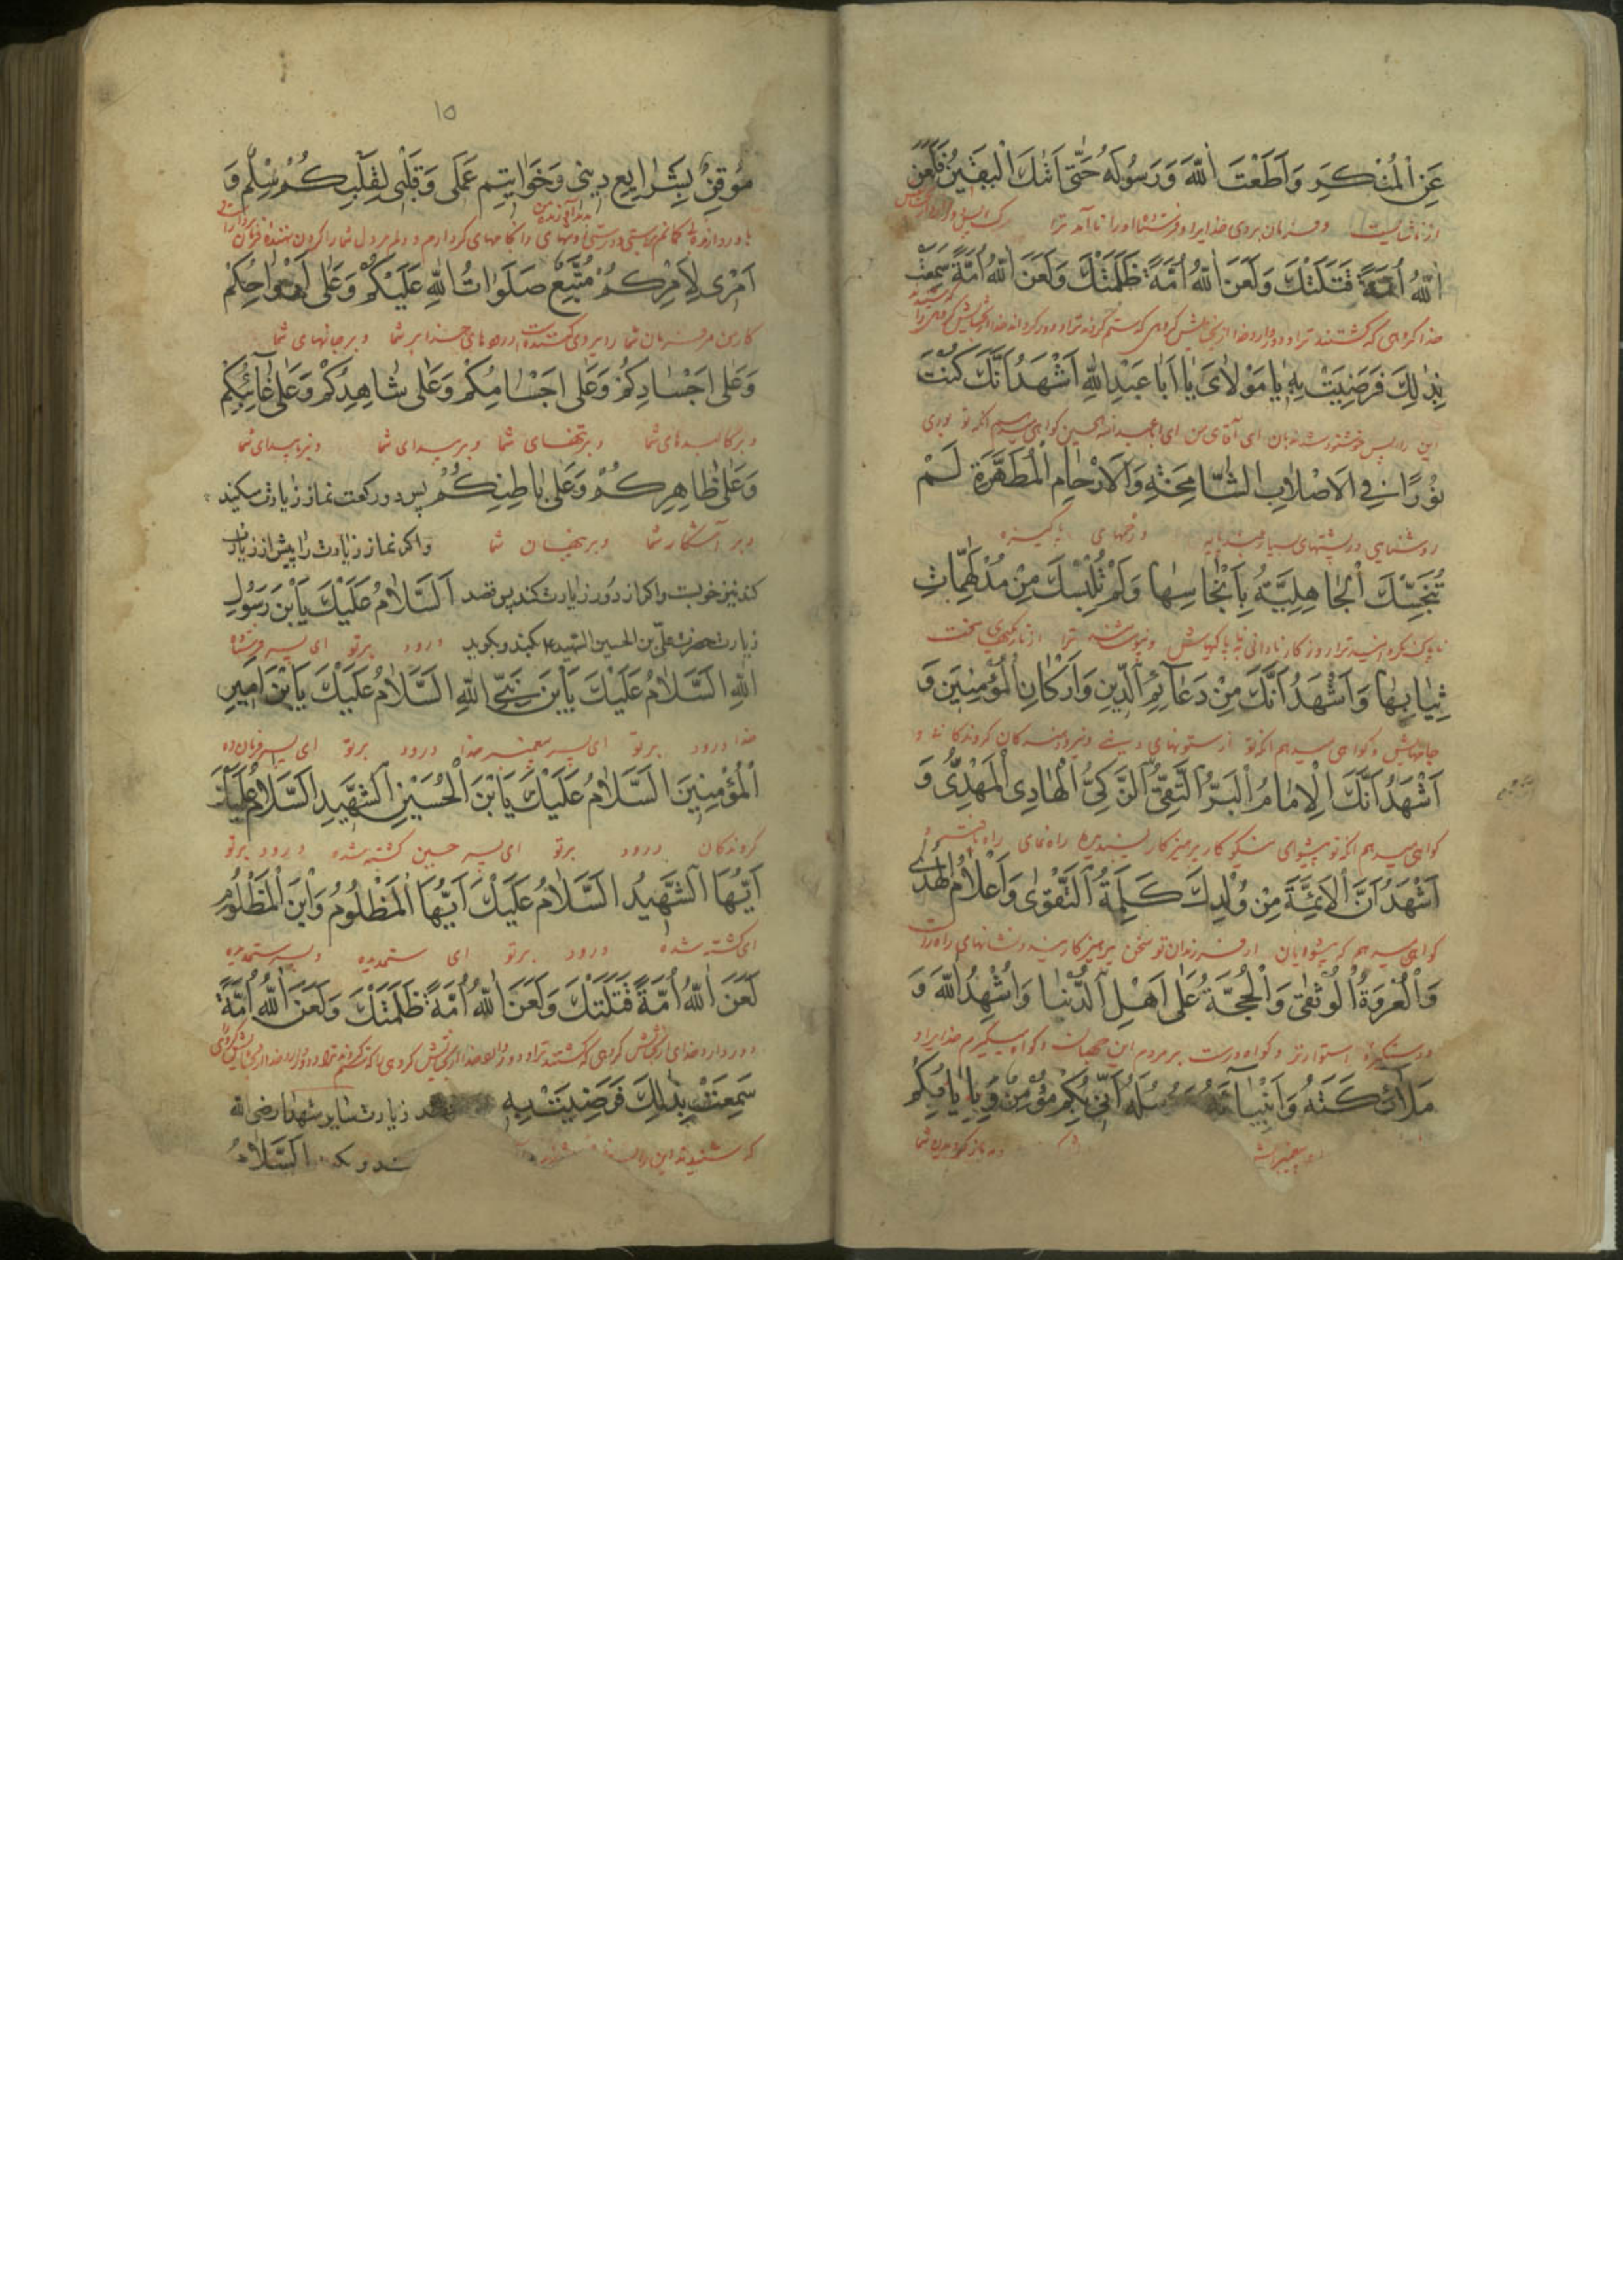 عَنِ الْمُنْكَرِ وَاَطَعْتَ اللّٰهَ وَرَسُولَهُ حَتّٰى اَتٰىكَ الْيَقِينُ فَلَعَنَ
از ناشایست و فرمان بردی خدایرا و فرستاده اورا تا آمد ترا
اللّٰهُ اُمَّةً قَتَلَتْكَ وَلَعَنَ اللّٰهُ اُمَّةً ظَلَمَتْكَ وَلَعَنَ اللّٰهُ اُمَّةً سَمِعَتْ
خدا گروهی که کشتند ترا و دور دارد خدا از بخشایش گروهی که ستم کردند ترا و دور گرداند خدا از بخشایش گروهی را
بِذٰلِكَ فَرَضِيَتْ بِهِ يٰا مَوْلٰاىَ يٰا اَبٰا عَبْدِ اللّٰهِ اَشْهَدُ اَنَّكَ كُنْتَ
این را پس خوشنود شدند بان ای آقای من ای ابا عبد الله الحسین گواهی میدهم انکه تو بودی
نُورًا فِي الْاَصْلٰابِ الشّٰامِخَةِ وَالْاَرْحٰامِ الْمُطَهَّرَةِ لَمْ
روشنایی در پشتهای بسیار بلند پایه و رحمهای پاکیزه
تُنَجِّسْكَ الْجٰاهِلِيَّةُ بِاَنْجٰاسِهٰا وَلَمْ تُلْبِسْكَ مِنْ مُدْلَهِمّٰاتِ
ناپاک نکردانید ترا روزگار نادانی به ناپاکیهایش و نپوشانید ترا از تاریکیهای سخت
ثِيٰابِهٰا وَاَشْهَدُ اَنَّكَ مِنْ دَعٰائِمِ الدِّينِ وَاَرْكٰانِ الْمُؤْمِنِينَ وَ
جامهایش و گواهی میدهم انکه تو از ستونهای دینی و گروندگانند و
اَشْهَدُ اَنَّكَ الْاِمٰامُ الْبَرُّ التَّقِيُّ الزَّكِيُّ الْهٰادِي الْمَهْدِيُّ وَ
گواهی میدهم انکه تو پیشوای نیکوکار پرهیزکار پسندیده راه نمای راه یافته
اَشْهَدُ اَنَّ الْاَئِمَّةَ مِنْ وُلْدِكَ كَلِمَةُ التَّقْوٰى وَاَعْلٰامُ الْهُدٰى
گواهی میدهم که پیشوایان از فرزندان تو سخن پرهیزکارینند و نشانهای راه راست
وَالْعُرْوَةُ الْوُثْقٰى وَالْحُجَّةُ عَلٰى اَهْلِ الدُّنْيٰا وَاُشْهِدُ اللّٰهَ وَ
و دستگیره استوارند و گواه درست بر مردم این جهان و گواه میگیرم خدایرا و
مَلٰائِكَتَهُ وَاَنْبِيٰائَهُ وَرُسُلَهُ اَنِّي بِكُمْ مُؤْمِنٌ وَبِاِيٰابِكُمْ
و پیغمبرانش و به بازگردیدن شما
۱۵
مُوقِنٌ بِشَرٰايِعِ دِينِي وَخَوٰاتِيمِ عَمَلِي وَقَلْبِي لِقَلْبِكُمْ سِلْمٌ وَ
اَمْرِي لِاَمْرِكُمْ مُتَّبِعٌ صَلَوٰاتُ اللّٰهِ عَلَيْكُمْ وَعَلٰى اَرْوٰاحِكُمْ
کار من مر فرمان شما را پیروی کننده است درودهای خدا بر شما و بر جانهای شما
وَعَلٰى اَجْسٰادِكُمْ وَعَلٰى اَجْسٰامِكُمْ وَعَلٰى شٰاهِدِكُمْ وَعَلٰى غٰآئِبِكُمْ
و بر کالبدهای شما و بر تنهای شما و بر پیدای شما و بر ناپیدای شما
وَعَلٰى ظٰاهِرِكُمْ وَعَلٰى بٰاطِنِكُمْ پس دو رکعت نماز زیارت میکند
و بر آشکار شما و بر پنهان شما و اگر نماز زیارت را پیش از زیارت
کند نیز خوبست و اگر از دور زیارت کند پس قصد اَلسَّلٰامُ عَلَيْكَ يَا بْنَ رَسُولِ
زیارت حضرت علی بن الحسین الشهید ع کند و بگوید درود بر تو ای پسر فرستاده
اللّٰهِ السَّلٰامُ عَلَيْكَ يَا بْنَ نَبِيِّ اللّٰهِ السَّلٰامُ عَلَيْكَ يَا بْنَ اَمِيرِ
خدا درود بر تو ای پسر پیغمبر خدا درود بر تو ای پسر فرمان ده
الْمُؤْمِنِينَ السَّلٰامُ عَلَيْكَ يَا بْنَ الْحُسَيْنِ الشَّهِيدِ السَّلٰامُ عَلَيْكَ
گروندگان درود بر تو ای پسر حسین کشته شده درود بر تو
اَيُّهَا الشَّهِيدُ السَّلٰامُ عَلَيْكَ اَيُّهَا الْمَظْلُومُ وَابْنَ الْمَظْلُومِ
ای کشته شده درود بر تو ای ستمدیده و پسر ستمدیده
لَعَنَ اللّٰهُ اُمَّةً قَتَلَتْكَ وَلَعَنَ اللّٰهُ اُمَّةً ظَلَمَتْكَ وَلَعَنَ اللّٰهُ اُمَّةً
سَمِعَتْ بِذٰلِكَ فَرَضِيَتْ بِهِ زیارت سایر شهدا رضی الله
که شنیدند این را اَلسَّلٰامُ